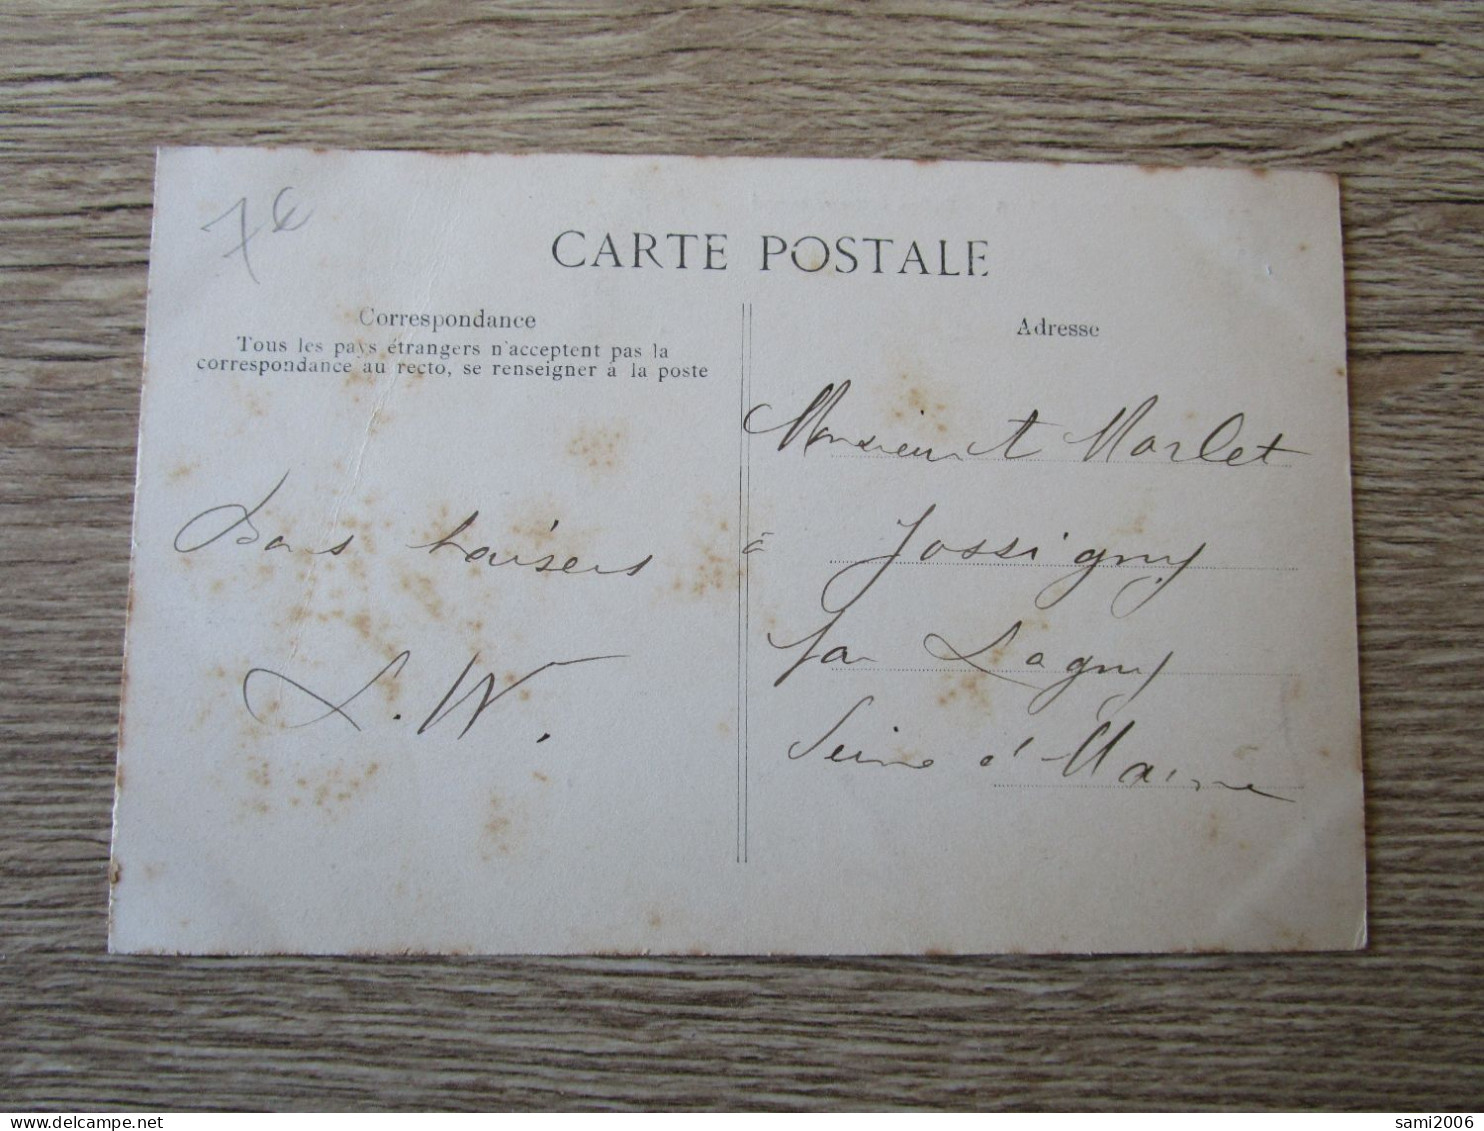 7€
CARTE POSTALE
Correspondance
Tous les pays étrangers n'acceptent pas la
correspondance au recto, se renseigner à la poste
Adresse
Bons baisers
L. W.
Monsieur A Marlet
à Jossigny
par Lagny
Seine & Marne
sami2006